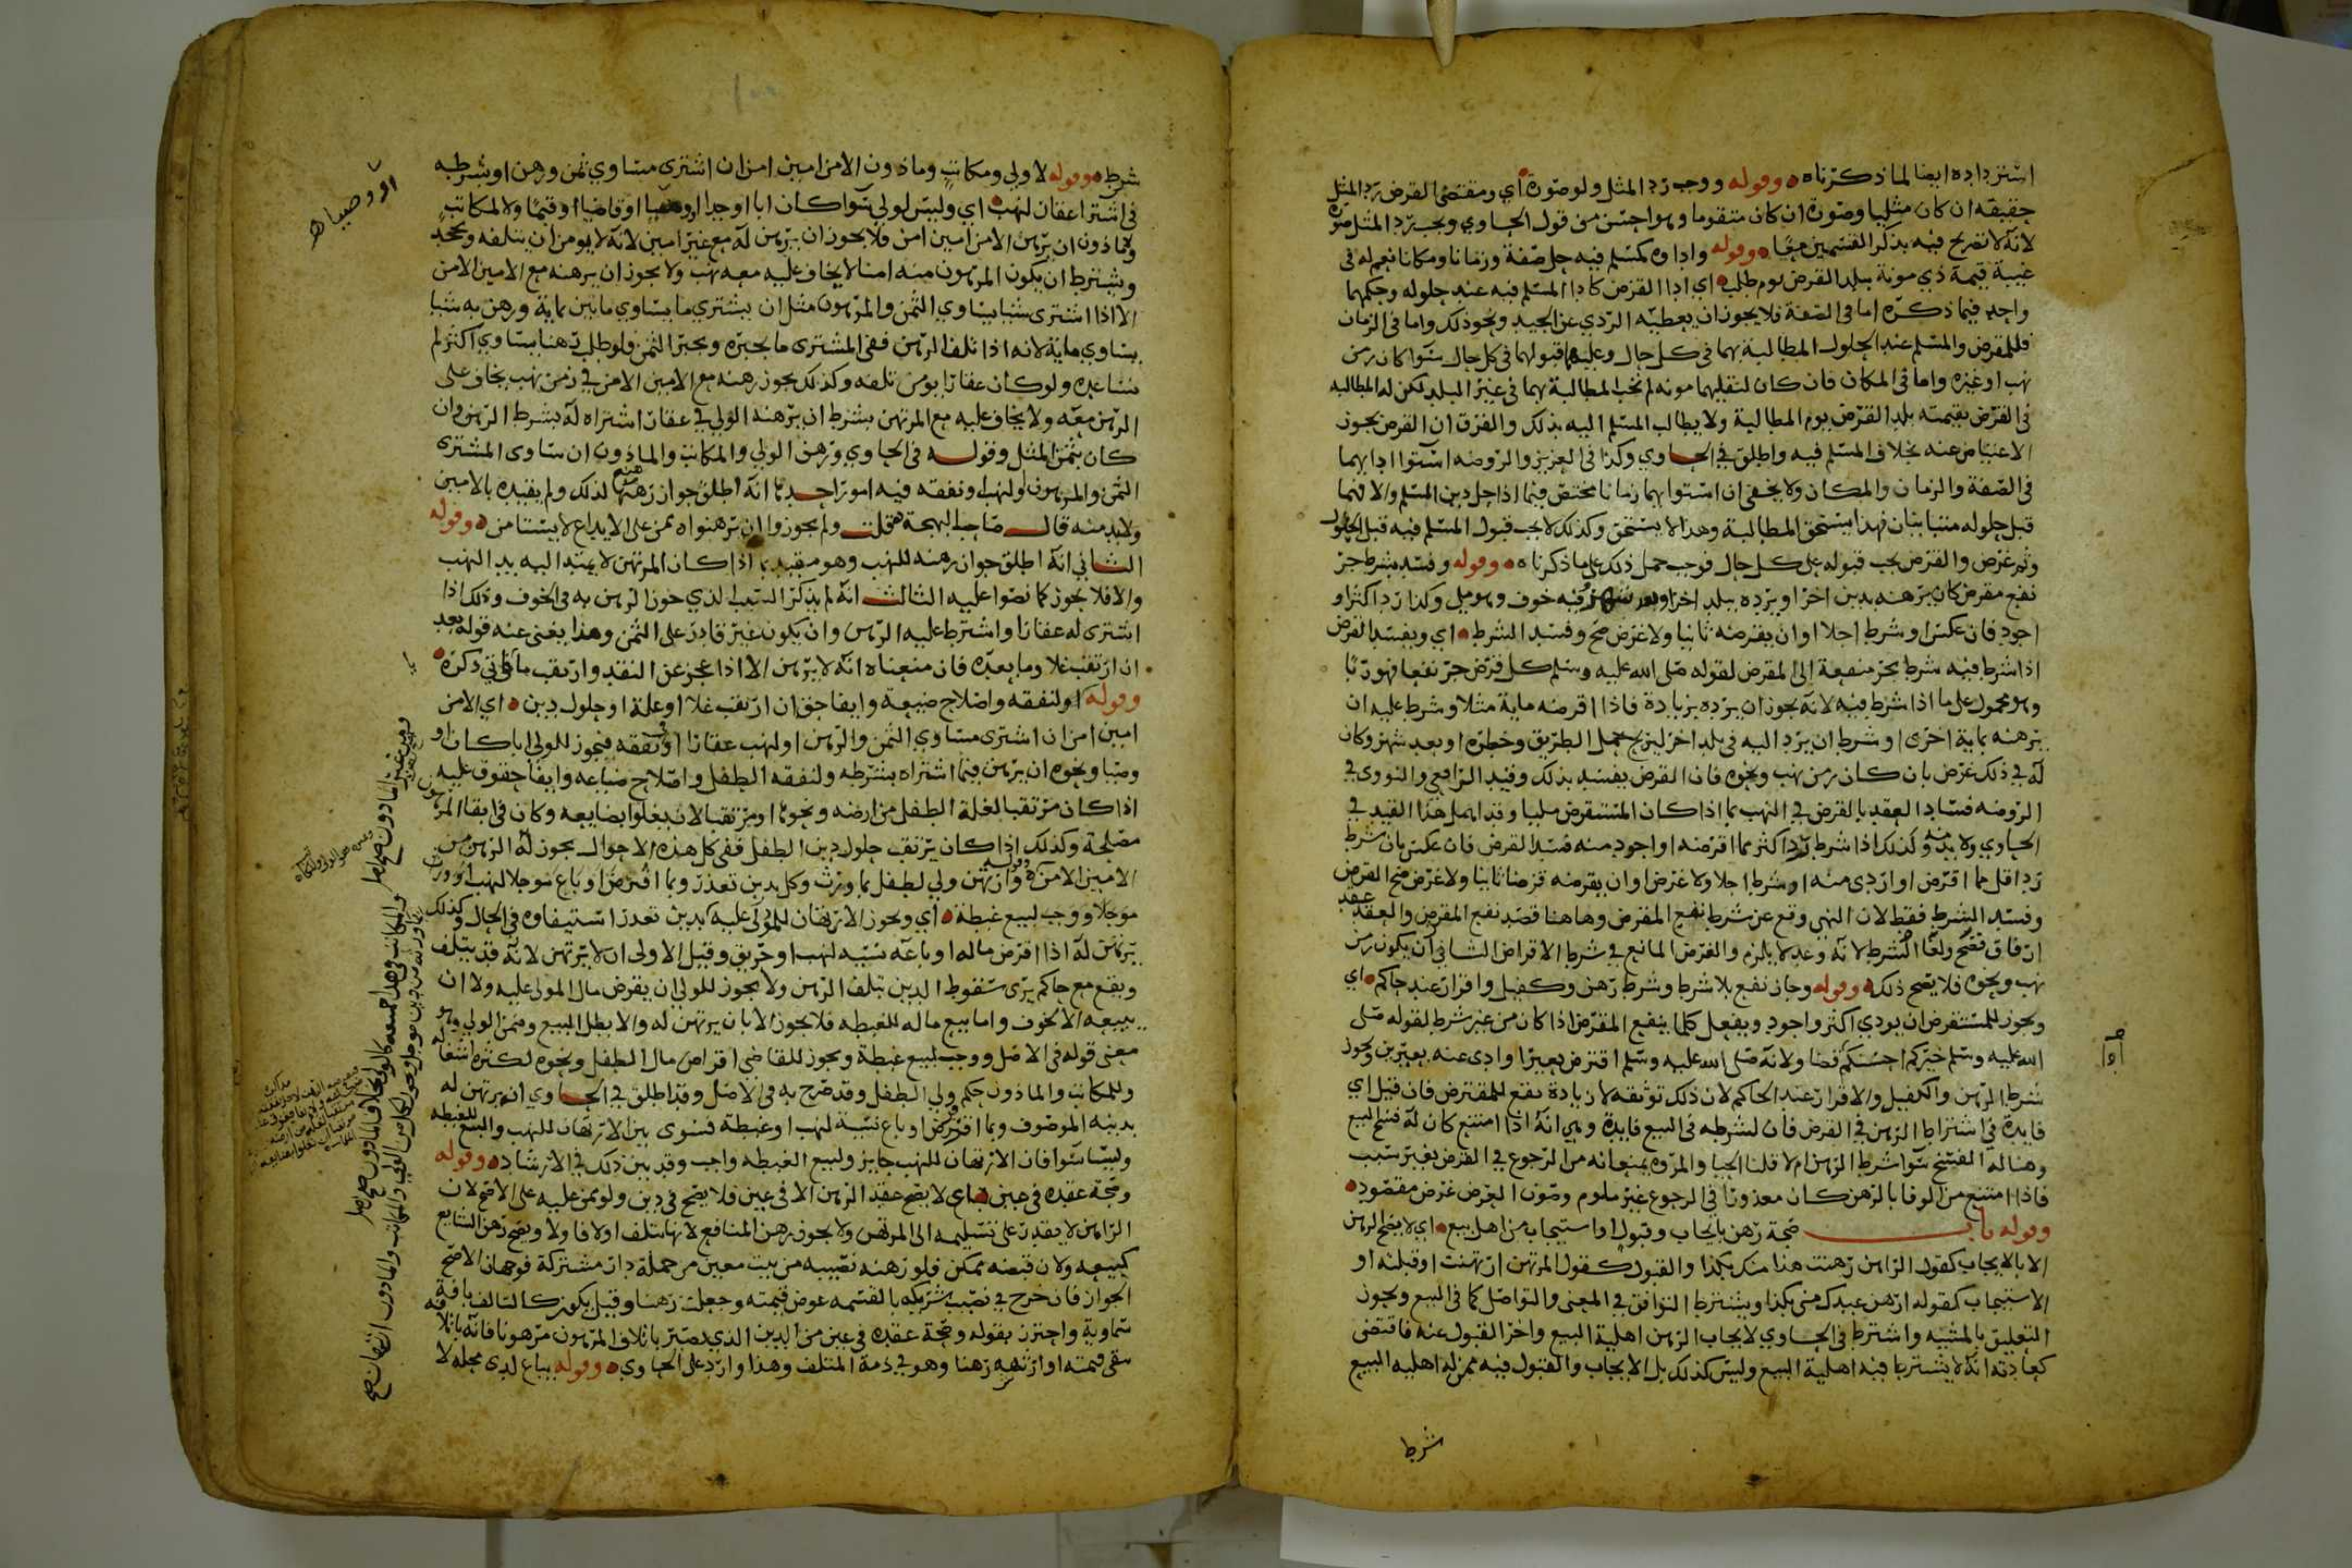 استرداده ايضا لما ذكرناه وقوله ووجب رد المثل ولو صورة اي ومقتضى القرض رد المثل
حقيقة ان كان مثليا وصورة ان كان متقوما وهو احسن من قول الحاوي ويجب رد المثل صورة
لانه لا تصريح فيه بذكر القسمين معا وقوله واداوه كمسلم فيه حل صفة وزمانا ومكانا نعم له في
غيبة قيمة ذي مونة ببلد القرض يوم طلب اي اداء القرض كاداء المسلم فيه عند حلوله وحكمهما
واحد فيما ذكره اما في الصفة فلا يجوز ان يعطيه الردي عن الجيد ونحو ذلك واما في الزمان
فللمقرض والمسلم عند الحلول المطالبة بهما في كل حال وعليهما قبولهما في كل حال سوا كان زمن
نهب او غيره واما في المكان فان كان لنقلهما مونه لم تجب المطالبة بهما في غير البلد لكن له المطالبه
في القرض بقيمته بلد القرض يوم المطالبة ولا يطالب المسلم اليه بذلك والفرق ان القرض يجوز
الاعتياض عنه بخلاف المسلم فيه واطلق في الحاوي وكذا في العزيز والروضه استوا ادايهما
في الصفة والزمان والمكان ولا يخفى ان استوايهما زمانا مختص فيما اذا حل دين المسلم والا فهما
قبل حلوله متباينان فهذا يستحق المطالبة وهذا لا يستحق وكذلك لا يجب قبول المسلم فيه قبل الحلول
وثم غرض والقرض يجب قبوله على كل حال فوجب حمل ذلك على ما ذكرناه وقوله وفسد بشرط جر
نفع مقرض كان يرهنه بدين اخر او يرده ببلد اخر او بعد شهر فيه خوف وهو ملي وكذا رد اكثر او
اجود فان عكس او شرط اجلا او ان يقرضه ثانيا ولا غرض صح وفسد الشرط اي ويفسد القرض
اذا شرط فيه شرط يجر منفعة الى المقرض لقوله صلى الله عليه وسلم كل قرض جر نفعا فهو ربا
وهو محمول على ما اذا شرط فيه لانه يجوز ان يرده بزيادة فاذا اقرضه ماية مثلا وشرط عليه ان
يرهنه بماية اخرى او شرط ان يرد اليه في بلد اخر ليزيح حمل الطريق وخطره او بعد شهر وكان
له في ذلك غرض بان كان زمن نهب ونحوه فان القرض يفسد بذلك وقيد الرافعي والنووي في
الروضه فساد العقد بالقرض في النهب بما اذا كان المستقرض مليا وقد اهمل هذا القيد في
الحاوي ولا بد منه وكذلك اذا شرط رد اكثر مما اقرضه او اجود منه فسد القرض فان عكس بان شرط
رد اقل مما اقرض او اردى منه او شرط اجلا ولا غرض او ان يقرضه قرضا ثانيا ولا غرض صح القرض
وفسد الشرط فقط لان النهي وقع عن شرط نفع المقرض وهاهنا قصد نفع المقرض والعقد عقد
ارفاق فصح ولغا الشرط لانه وعد لا يلزم والغرض المانع في شرط الاقراض الثاني ان يكون زمن
نهب ونحوه فلا يصح ذلك وقوله وجاز نفع بلا شرط وشرط رهن وكفيل واقرار عند حاكم اي
ويجوز للمستقرض ان يودي اكثر واجود ويفعل كلما ينفع المقرض اذا كان من غير شرط لقوله صلى
الله عليه وسلم خيركم احسنكم قضا ولانه صلى الله عليه وسلم اقترض بعيرا وادى عنه بعيرين ويجوز
شرط الرهن والكفيل والاقرار عند الحاكم لان ذلك توثقه لا زيادة نفع للمقترض فان قيل اي
فايدة في اشتراط الرهن في القرض فان لشرطه في البيع فايدة وهي انه اذا امتنع كان له فسخ البيع
وهنا له الفسخ سوا شرط الرهن ام لا قلنا الحيا والمروه يمنعانه من الرجوع في القرض بغير سبب
فاذا امتنع من الوفا بالرهن كان معذورا في الرجوع غير ملوم وصون العرض غرض مقصود
وقوله باب صحة رهن بايجاب وقبول او استيجاب من اهل بيع اي لا يصح الرهن
الا بالايجاب كقول الراهن رهنت هذا منك بكذا والقبول كقول المرتهن ارتهنت او قبلته او
الاستيجاب كقوله ارهن عبدك مني بكذا ويشترط التوافق في المعنى والتواصل كما في البيع ويجوز
التعليق بالمشيه واشترط في الحاوي لايجاب الرهن اهلية البيع واخر القبول عنه فاقتضى
كعادته انه لا يشترط فيه اهلية البيع وليس كذلك بل الايجاب والقبول فيه ممن له اهليه البيع
شرط
شرط وقوله لا ولي ومكاتب وماذون الا من امين امن ان اشترى مساوي ثمن ورهن او شرط به
في اشترا عقار لنهب اي وليس لولي سوا كان ابا او جدا او وصيا او قاضيا او قيما ولا لمكاتب
وماذون ان يرهن الا من امين امن فلا يجوز ان يرهن له مع غير امين لانه لا يومن ان يتلفه ويجحد
ويشترط ان يكون المرهون منه امنا لا يخاف عليه معه نهب ولا يجوز ان يرهنه مع الامين الامن
الا اذا اشترى شيا يساوي الثمن والمرهون مثل ان يشتري ما يساوي مايتين بماية ورهن به شيا
يساوي ماية لانه اذا تلف الرهن ففي المشترى ما يجبره ويجبر الثمن فلو طلب رهنا يساوي اكثر لم
يساعده ولو كان عقارا يومن تلفه وكذلك يجوز رهنه مع الامين الامن في زمن نهب يخاف على
الرهن معه ولا يخاف عليه مع المرتهن بشرط ان يرهنه الولي في عقار اشتراه له بشرط الرهن وان
كان بثمن المثل وقوله في الحاوي ورهن الولي والمكاتب والماذون ان ساوى المشترى
الثمن والمرهون او لنهب ونفقه فيه امور احدها انه اطلق جواز رهنهما لذلك ولم يقيده بالامين
ولا بد منه قال صاحب البهجة قلت ولم يجوزوا ان يرهنوا من على الايداع لا يستامن وقوله
الثاني انه اطلق جواز رهنه للنهب وهو مقيد بما اذا كان المرتهن لا يمتد اليه يد النهب
والا فلا يجوز كما نصوا عليه الثالث انه لم يذكر السبب الذي جوز الرهن به في الخوف وذلك اذا
اشترى له عقارا واشترط عليه الرهن وان يكون غير قادر على الثمن وهذا يغني عنه قوله بعد
ان ارتقب غلا وما بعده فان معناه انه لا يرهن الا اذا عجز عن النقد وارتقب ما ياتي ذكره
وقوله او لنفقه واصلاح ضيعة وايفا حق ان ارتقب غلا او غلة او حلول دين اي الا من
امين امن ان اشترى مساوي الثمن والرهن او لنهب عقارا او نفقه فيجوز للولي ابا كان او
وصيا ونحوه ان يرهن فيما اشتراه بشرطه ولنفقه الطفل واصلاح ضياعه وايفا حقوق عليه
اذا كان مرتقبا لغلة الطفل من ارضه ونحوها او مرتقبا لان يغلوا بضايعه وكان في ابقا المرهون
مصلحة وكذلك اذا كان يرتقب حلول دين الطفل ففي كل هذه الاحوال يجوز له الرهن من
الامين الامن وقوله وارتهن ولي لطفل بما ورث وكل بدين تعذر وبما اقرض او باع موجلا لنهب او ورث
موجلا ووجب لبيع غبطة اي ويجوز الارتهان للمولى عليه بدين تعذر استيفاوه في الحال وكذلك
يرتهن له اذا اقرض ماله او باعه نسيه لنهب او حريق وقيل الاولى ان لا يرتهن لانه قد يتلف
ويقع مع حاكم يرى سقوط الدين بتلف الرهن ولا يجوز للولي ان يقرض مال المولى عليه ولا ان
يبيعه الا لخوف واما بيع ماله للغبطه فلا يجوز الا بان يرتهن له والا بطل البيع وضمن الولي وهو
معنى قوله في الاصل ووجب لبيع غبطة ويجوز للقاضي اقراض مال الطفل ونحوه لكثرة اشغاله
وللمكاتب والماذون حكم ولي الطفل وقد صرح به في الاصل وقد اطلق في الحاوي انه يرتهن له
بدينه الموصوف وبما اقرض او باع نسية لنهب او غبطة فسوى بين الارتهان للنهب والبيع للغبطه
وليسا سوا فان الارتهان للنهب جايز ولبيع الغبطه واجب وقد بين ذلك في الارشاد وقوله
وصحة عقده في عين اي لا يصح عقد الرهن الا في عين فلا يصح في دين ولو ممن عليه على الاصح لان
الراهن لا يقدر على تسليمه الى المرتهن ولا يجوز رهن المنافع لانها تتلف اولا فاولا ويصح رهن الشايع
كبيعه ولان قبضه ممكن فلو رهنه نصيبه من بيت معين من جملة دار مشتركة فوجهان الاصح
الجواز فان خرج في نصيب شريكه بالقسمه عوض قيمته وجعلت رهنا وقيل يكون كالتالف بافة
سماوية واحترز بقوله وصحة عقده في عين من الدين الذي يصير باتلاف المرهون مرهونا فانه باتلافه
بقى قيمته او ارتهبه رهنا وهو في ذمة المتلف وهذا وارد على الحاوي وقوله يباع لدى محله لا